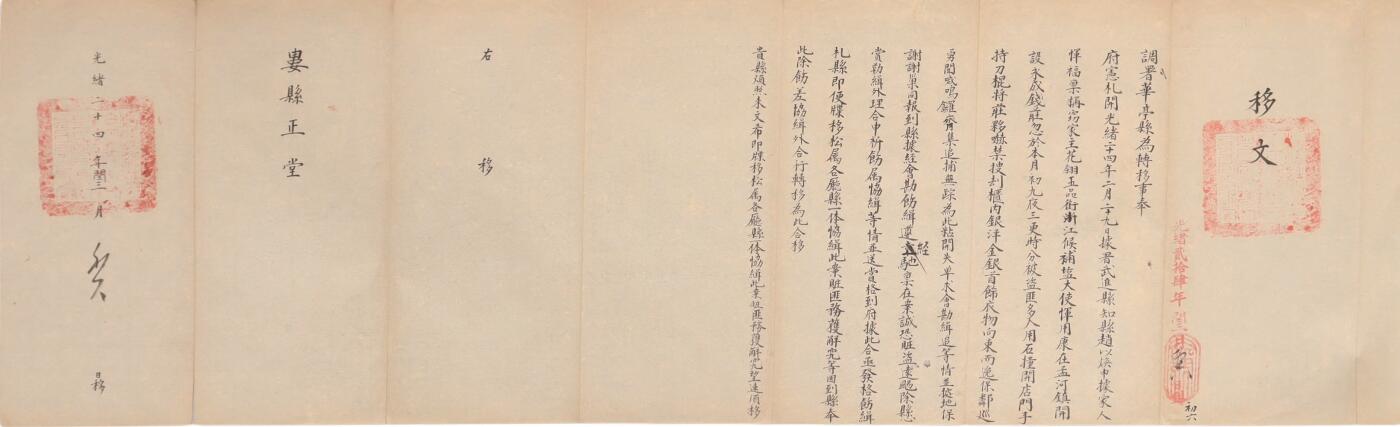 移文
光緒貳拾肆年閏三月
初六
調署華亭縣為轉移事奉
府憲札開光緒二十四年二月二十九日據署武進縣知縣趙以煥申據家人
惲福稟稱窃家主花翎五品銜浙江候補塩大使惲用康在孟河鎮開
設永成錢莊忽於本月初九夜三更時分被盜匪多人用石撞開店門手
持刀棍將莊夥嚇禁搜刦櫃內銀洋金銀首飾衣物向東而逸保鄰巡
勇聞喊鳴鑼齊集追捕無踪為此粘開失单求會勘緝追等情並㨿地保
謝謝巢同報到縣據經會勘飭緝遵經馳稟在案誠恐賍盜遠颺除懸
賞勒緝外理合申祈飭属協緝等情並送賞格到府據此合亟發格飭緝
札縣即便牒移松属各廳縣一体協緝此案賍匪務獲解究等因到縣奉
此除飭差協緝外合行轉移為此合移
貴縣煩照来文希即牒移松属各廳縣一体協緝此案賍匪務獲解究望速須移
右移
婁縣正堂
光緒二十四年閏三月
日移